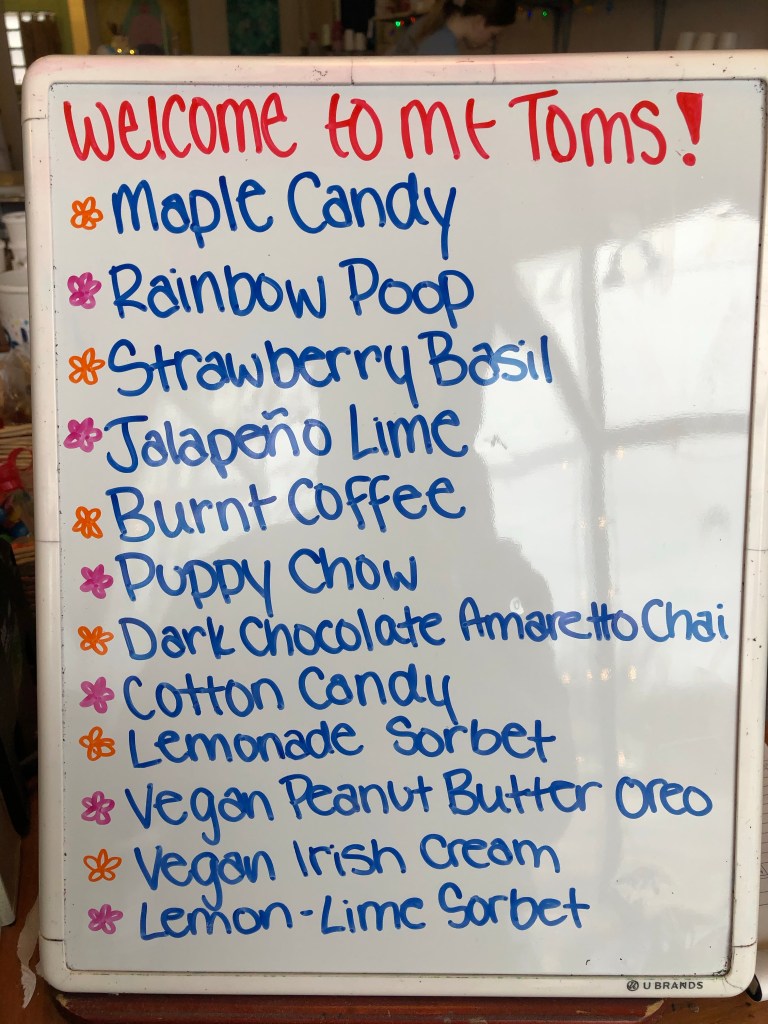 Welcome to mt Toms!
Maple Candy
Rainbow Poop
Strawberry Basil
Jalapeño Lime
Burnt Coffee
Puppy Chow
Dark Chocolate Amaretto Chai
Cotton Candy
Lemonade Sorbet
Vegan Peanut Butter Oreo
Vegan Irish Cream
Lemon-Lime Sorbet
U BRANDS